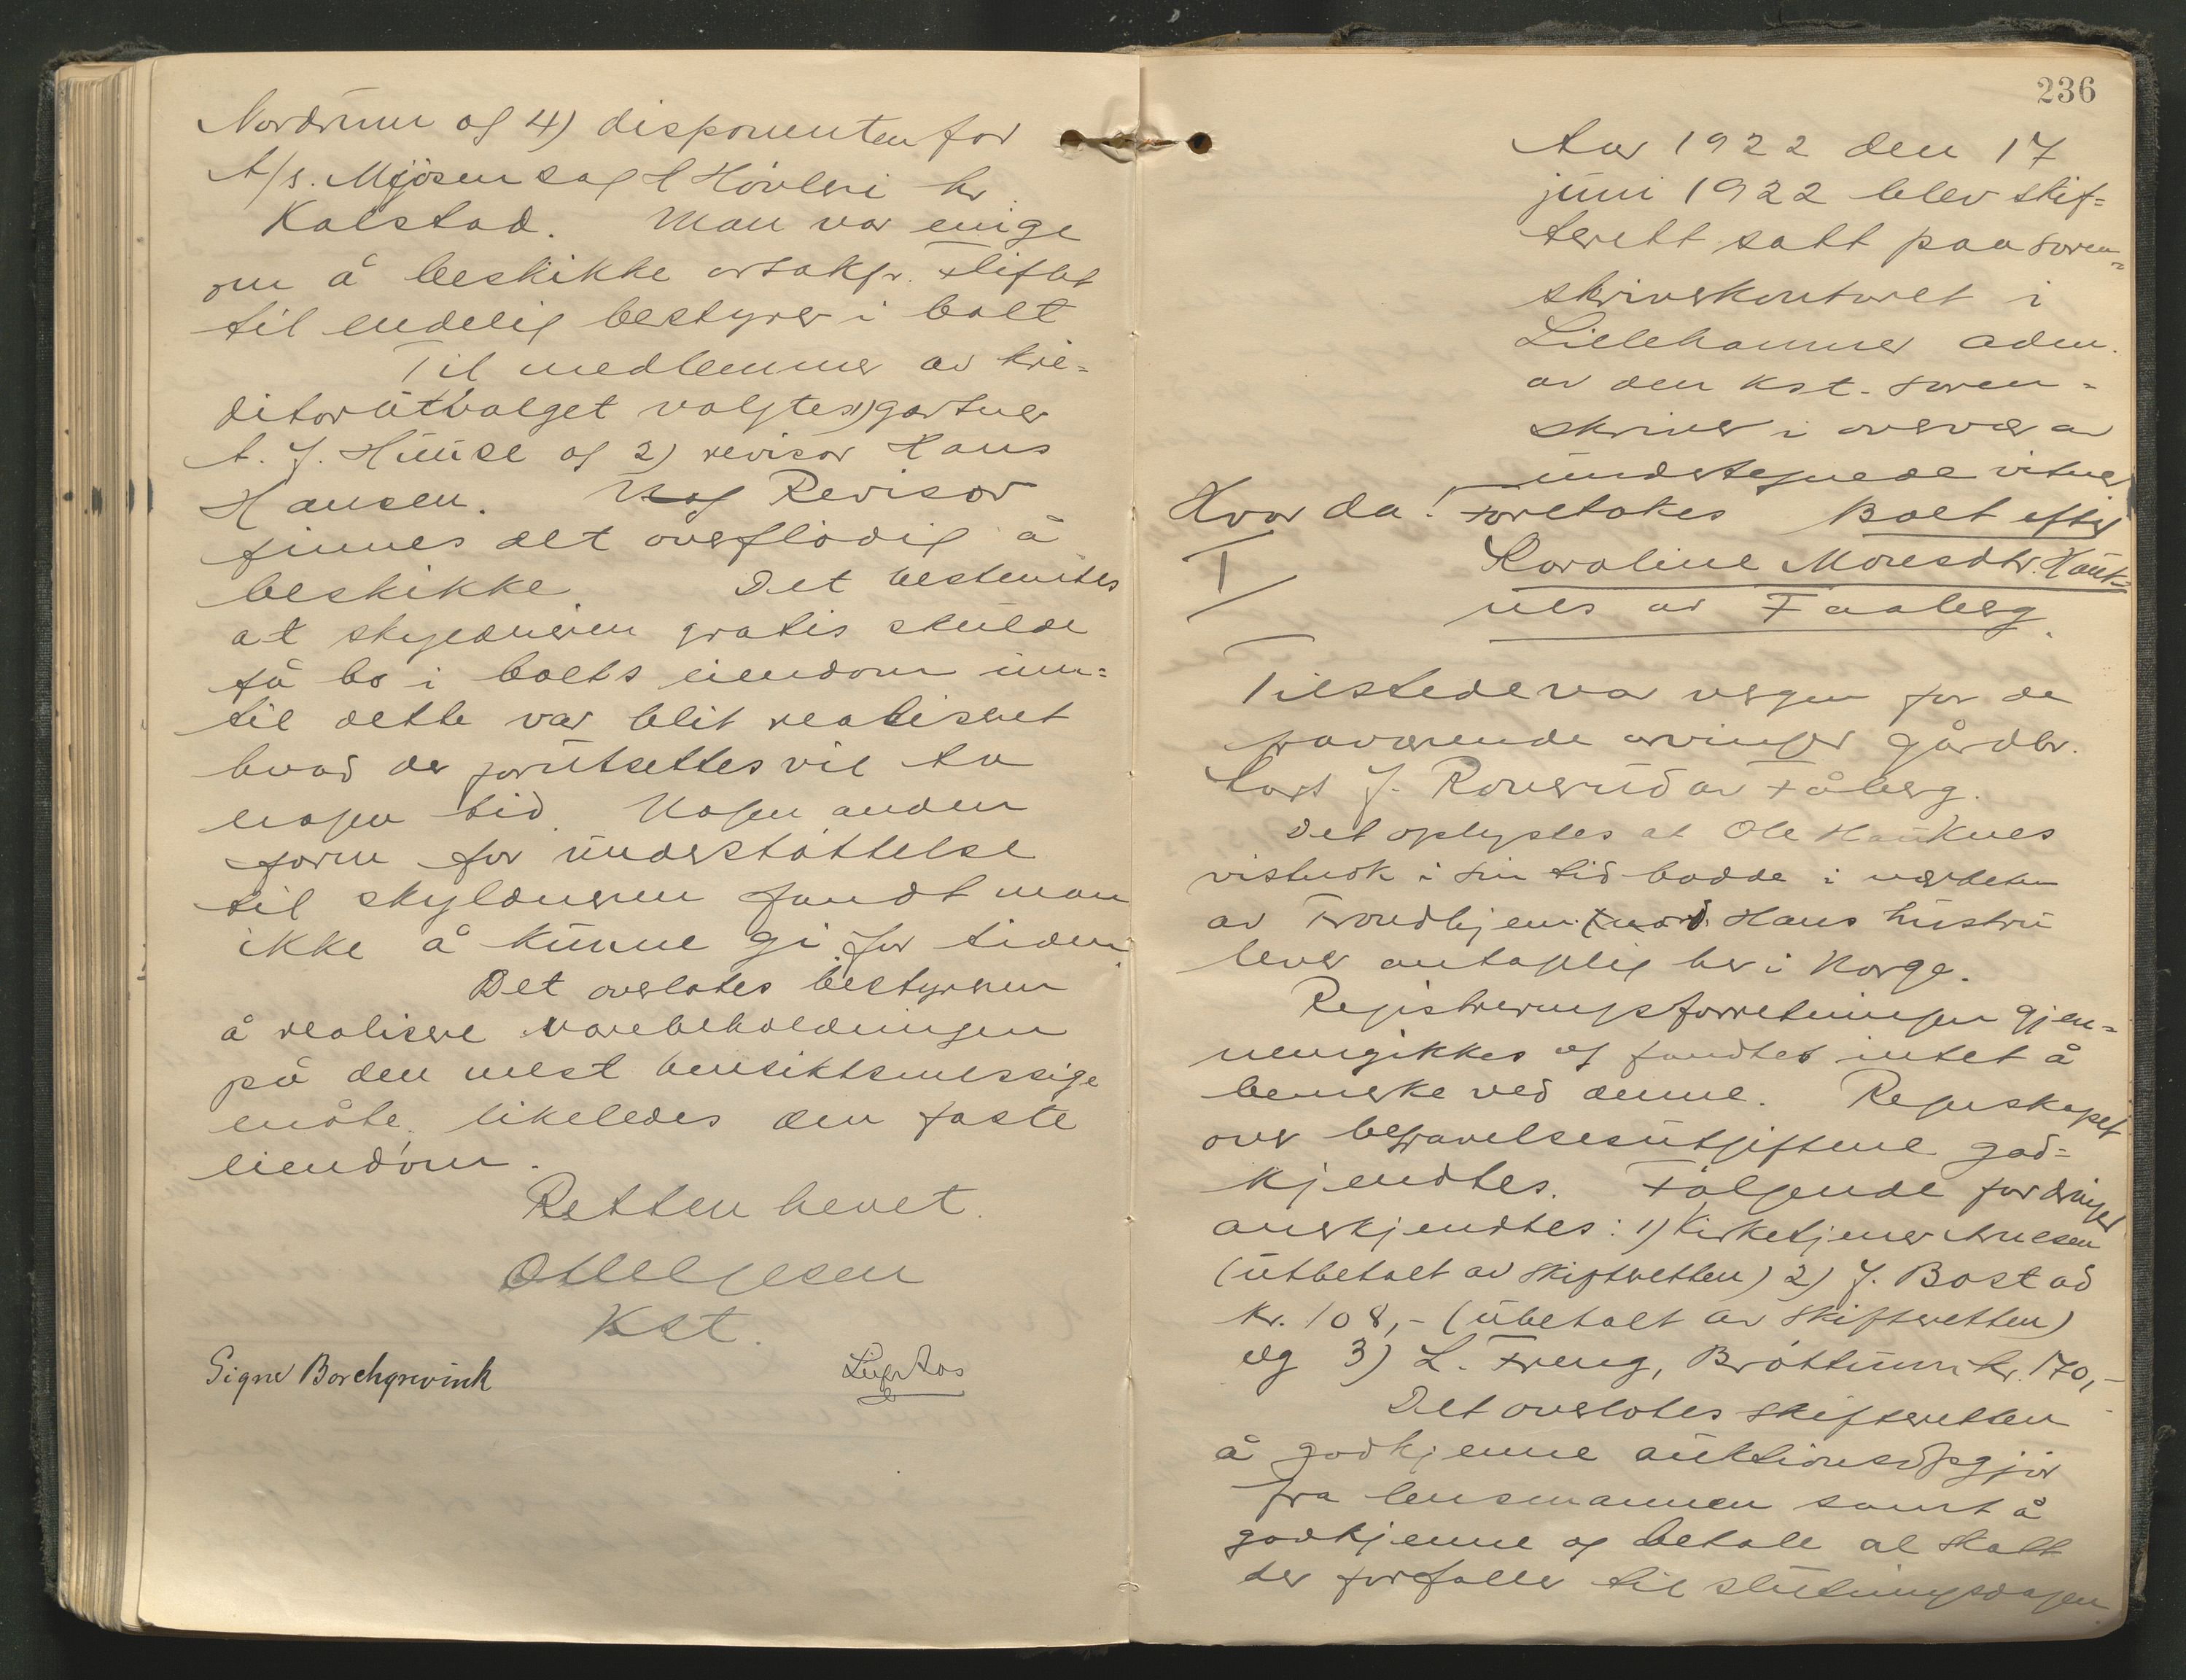 Nordrum og 4) disponenten for
A/s. Mjösen sag & Hövleri hr.
Kalstad. Man var enige
om å beskikke orsakfr. Fliflet
til endelig bestyrer i boet
Til medlemmer av kre-
ditorutvalget valgtes 1) gartner
A. J. Huuse og 2) revisor Hans
Hansen. Revisor
finnes det overflödig å
beskikke. Det bestemtes
at skyldneren gratis skulde
få bo i boets eiendom inn-
til dette var blit realiseret
hvad der forutsettes vil ta
nogen tid. Nogen anden
form for understöttelse
til skyldneren fandt man
ikke å kunne gi for tiden.
Det overlates bestyreren
å realisere varebeholdningen
på den mest hensiktsmessige
måte, likeledes den faste
eiendom.
Retten hevet.
O Helgesen
Kst.
Signe Borchgrevink Leif Aas
236
Aar 1922 den 17
juni 1922 blev skif-
terett satt paa soren-
skriverkontoret i
Lillehammer adm.
av den kst. soren-
skriver i overvær av
undertegnede vitner
Hvor da! Foretokes Boet efter
I Karoline Monsdtr. Hauk-
nes av Faaberg.
Tilstede var vergen for de
fraværende arvinger gårdbr.
Lars J. Roverud av Fåberg.
Det oplystes at Ole Hauknes
vistnok i sin tid bodde i nærheten
av Trondhjem. Hans hustru
lever antagelig her i Norge.
Registreringsforretningen gjen-
nemgikkes og fandtes intet å
bemerke ved denne. Regnskapet
over begravelsesutgiftene god-
kjendtes. Fölgende fordringer
anerkjendtes: 1) Kirketjener Arnesen
(utbetalt av skifteretten) 2) J. Bostad
kr. 108,- (ubetalt av skifteretten)
og 3) L. Freng, Bröttum kr. 170,-
Det overlates skifteretten
å godkjenne auktionsopgjör
fra lensmannen samt å
godkjenne og betale al skatt
der forfaller til slutningsdagen.